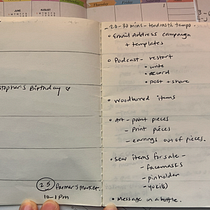 stopher's Birthday
25
Farmer's Market
12-5pm
- 25-30 mint - bed moth temps -
• Email Address campaign
+ templates
• Podcast - restart
- write
- record
- post + share
• Woodburned items
• Art - paint pieces
- Print pieces
- earrings out of pieces.
• Sew items for sale -
- facemasks
- pinholder
• Message in a bottle.